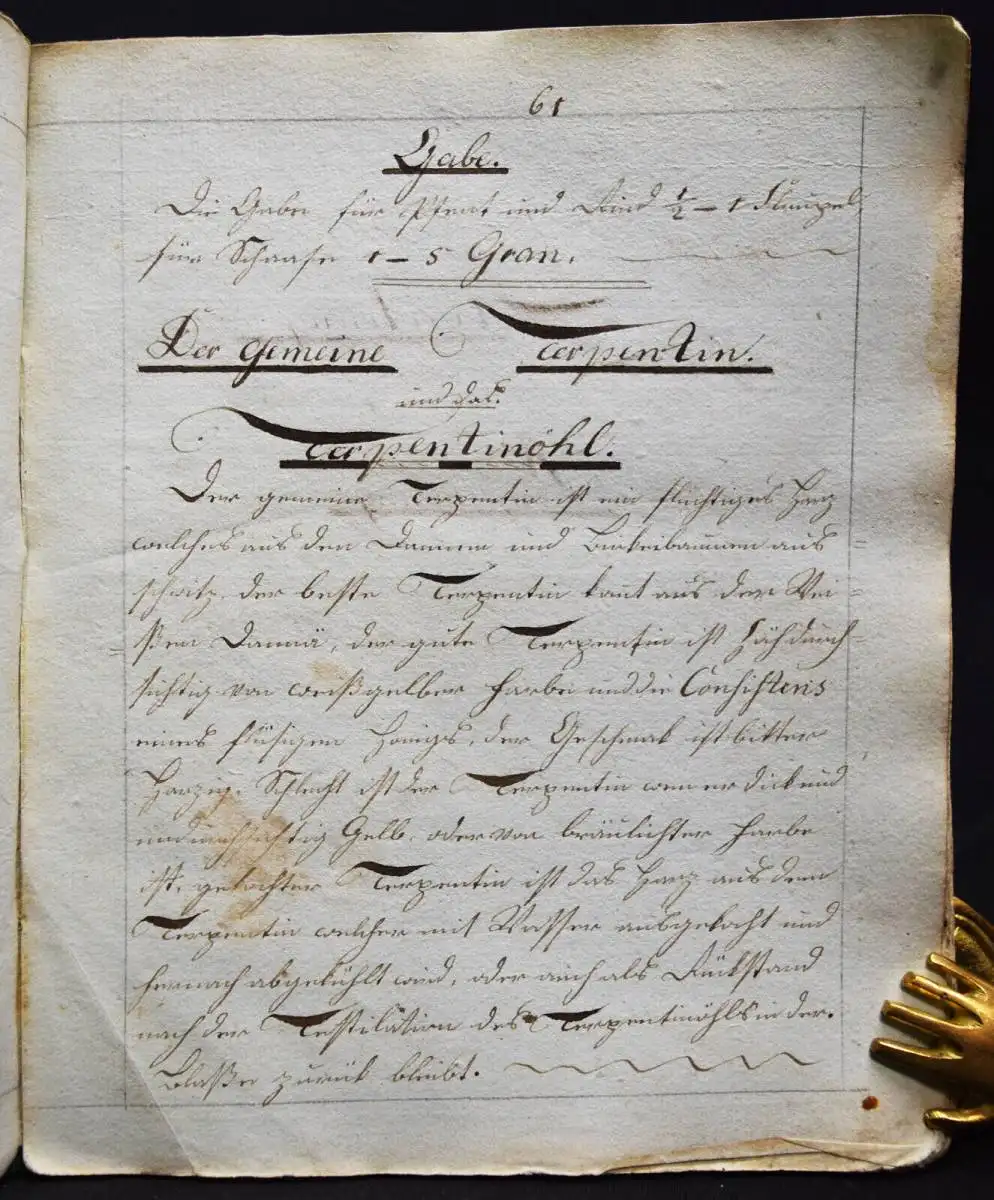 61
Gabe.
Die Gabe für Pferd und Rind ½ – 1 Skrupel
für Schaafe 1 – 5 Gran.
Der gemeine Terpentin.
und das.
Terpentinöhl.
Der gemeine Terpentin ist ein flüchtiges Harz
welches aus den Dannen und aus
schwitz, der beste Terpentin kaut aus der Wei
ßen Danne, der gute Terpentin ist Zäh durch
sichtig von weißgelber Farbe und die Consistens
eines flüsigen Honigs, der Geschmak ist bitter
Harzig. Schlecht ist der Terpentin wen er dick und
Gelb, oder von bräulichter Farbe
ist, gekochter Terpentin ist das Harz aus dem
Terpentin welcher mit Wasser ausgekocht und
hernach abgekühlt wird, oder auch als Rückstand
nach der Testilation des Terpentinöhls in der.
Blaße zurük bleibt.